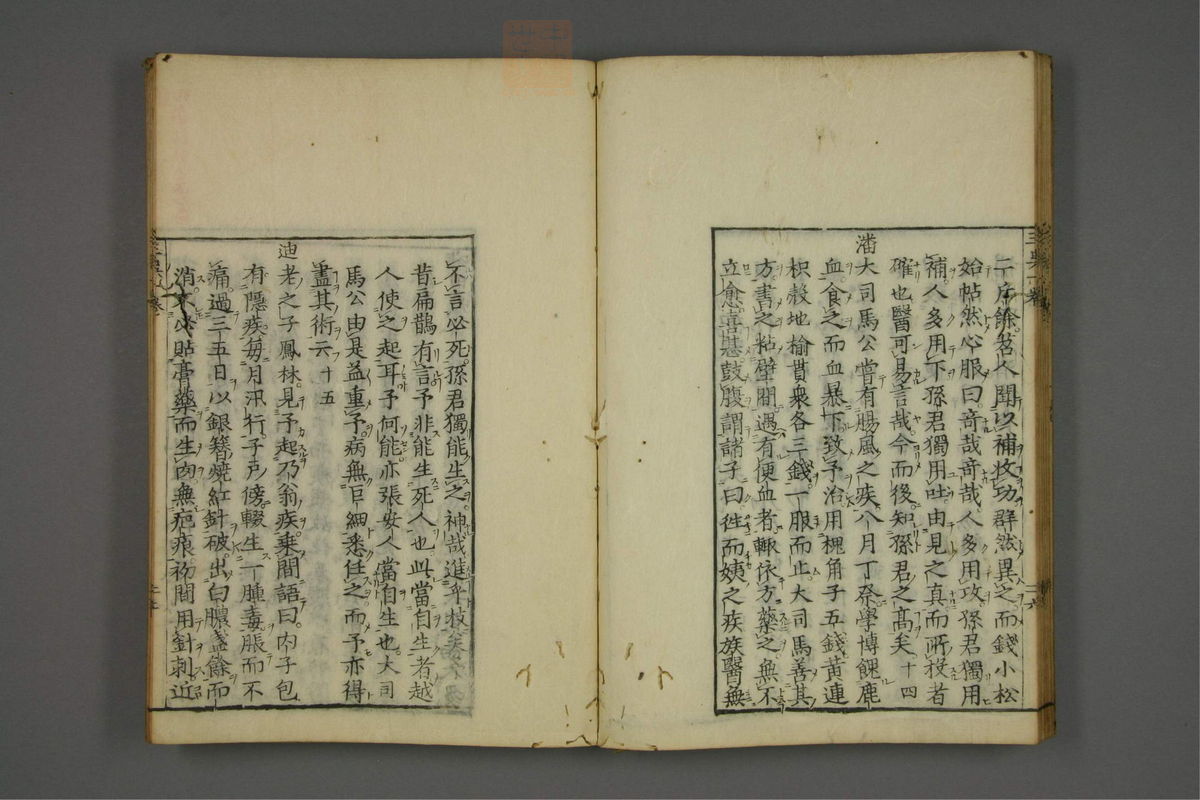 二斤餘茗人聞以補收功群然異之而錢小松
始帖然心服曰奇哉奇哉人多用攻孫君獨用
補人多用下孫君獨用吐由見之真而所投者
確也醫可易言哉今而後知孫君之高矣十四
潘大司馬公嘗有腸風之疾八月丁祭學博餽鹿
血食之而血暴下致予治用槐角子五錢黃連
枳殼地榆貫衆各三錢一服而止大司馬善其
方書之粘壁間遇有便血者輙依方藥之無不
立愈喜甚鼓腹謂諸子曰徃而姨之疾族醫無
不言必死孫君獨能生之神哉進乎技
昔扁鵲有言予非能生死人也此當自生者越
人使之起耳予何能亦張安人當自生也大司
馬公由是益重予病無巨細悉任之而予亦得
盡其術云十五
迪老之子鳳林見予起乃翁疾乘間語曰內子包
有隱疾每月汛行子戸傍輟生一腫毒脹而不
痛過三五日以銀簪燒紅針破出白膿盞餘而
消不必貼膏藥而生肉無疤痕初間用針刺近